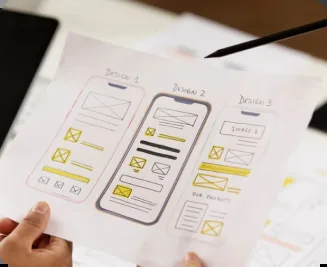 DESIGN 1
DESIGN 2
DESIGN 3
IMAGE 1
OUR PRODUCTS